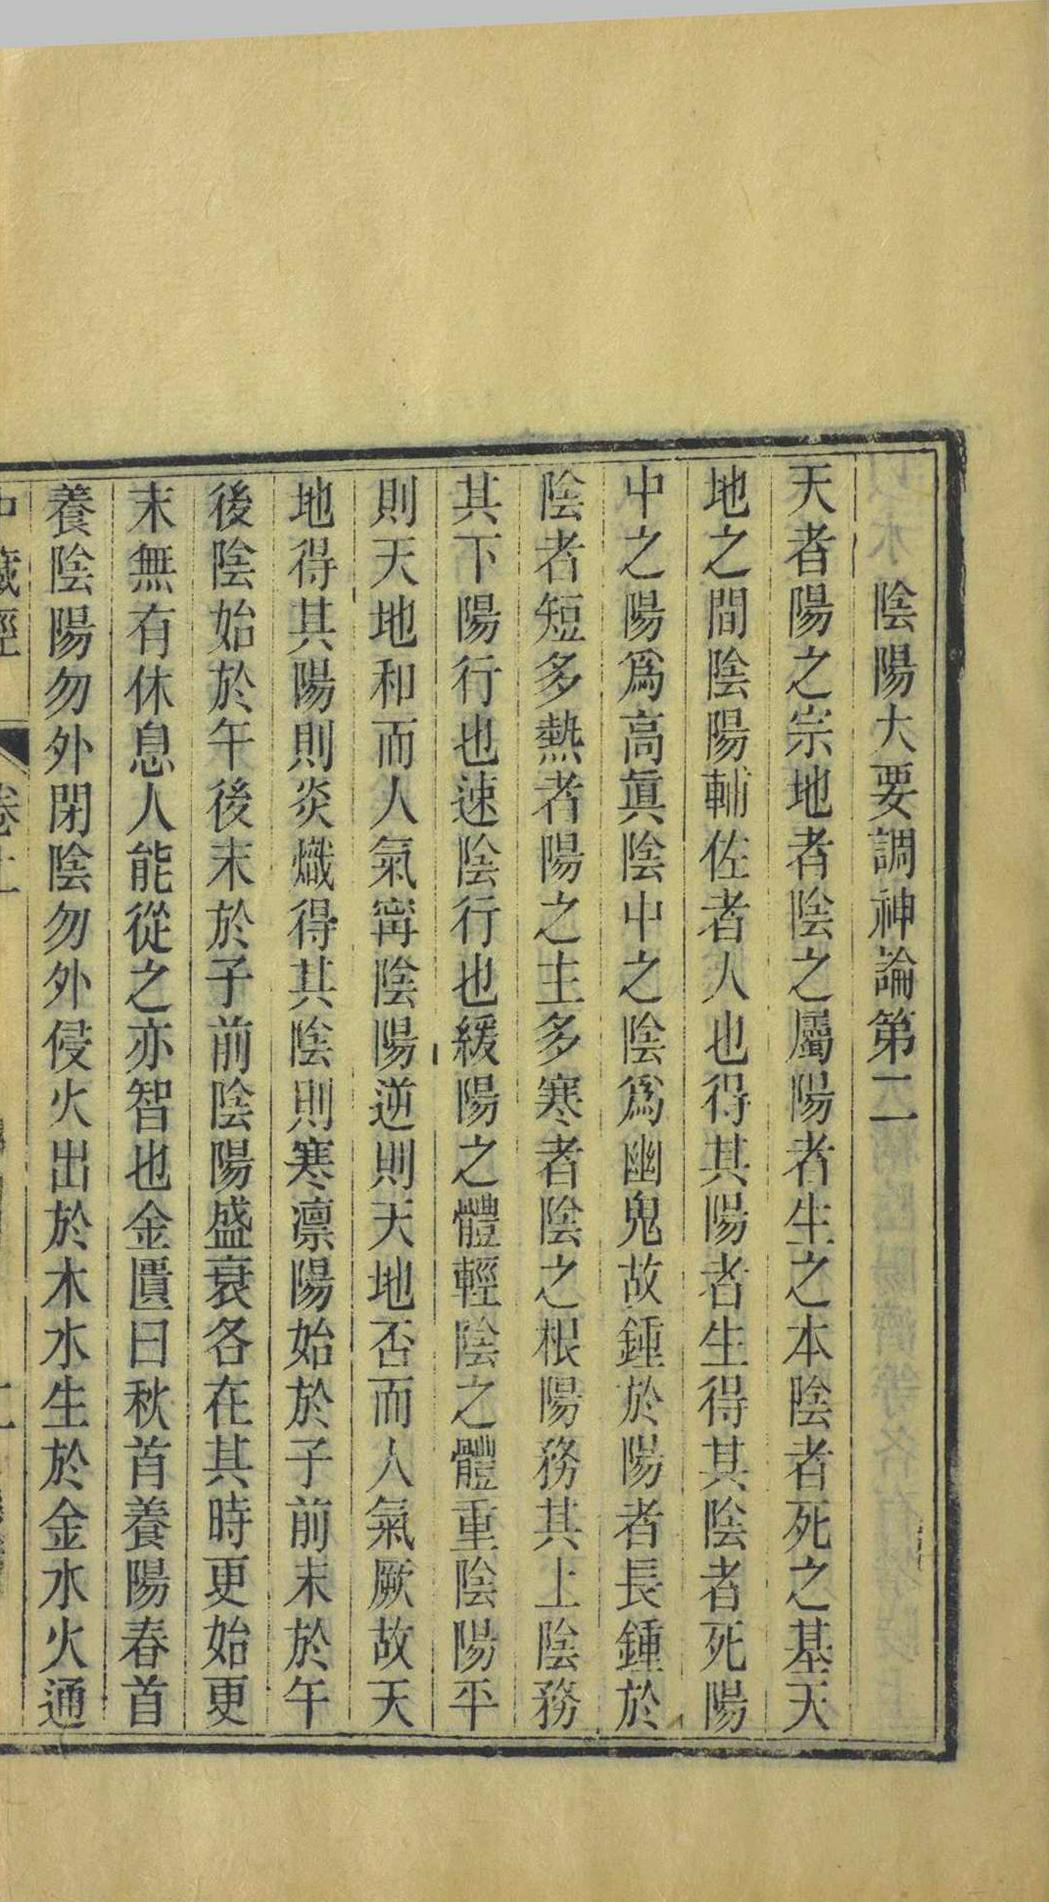 陰陽大要調神論第二
天者陽之宗地者陰之屬陽者生之本陰者死之基天
地之間陰陽輔佐者人也得其陽者生得其陰者死陽
中之陽爲高眞陰中之陰爲幽鬼故鍾於陽者長鍾於
陰者短多熱者陽之主多寒者陰之根陽務其上陰務
其下陽行也速陰行也緩陽之體輕陰之體重陰陽平
則天地和而人氣寗陰陽逆則天地否而人氣厥故天
地得其陽則炎熾得其陰則寒凛陽始於子前末於午
後陰始於午後末於子前陰陽盛衰各在其時更始更
末無有休息人能從之亦智也金匱曰秋首養陽春首
養陰陽勿外閉陰勿外侵火出於木水生於金水火通
中藏經 卷上 二